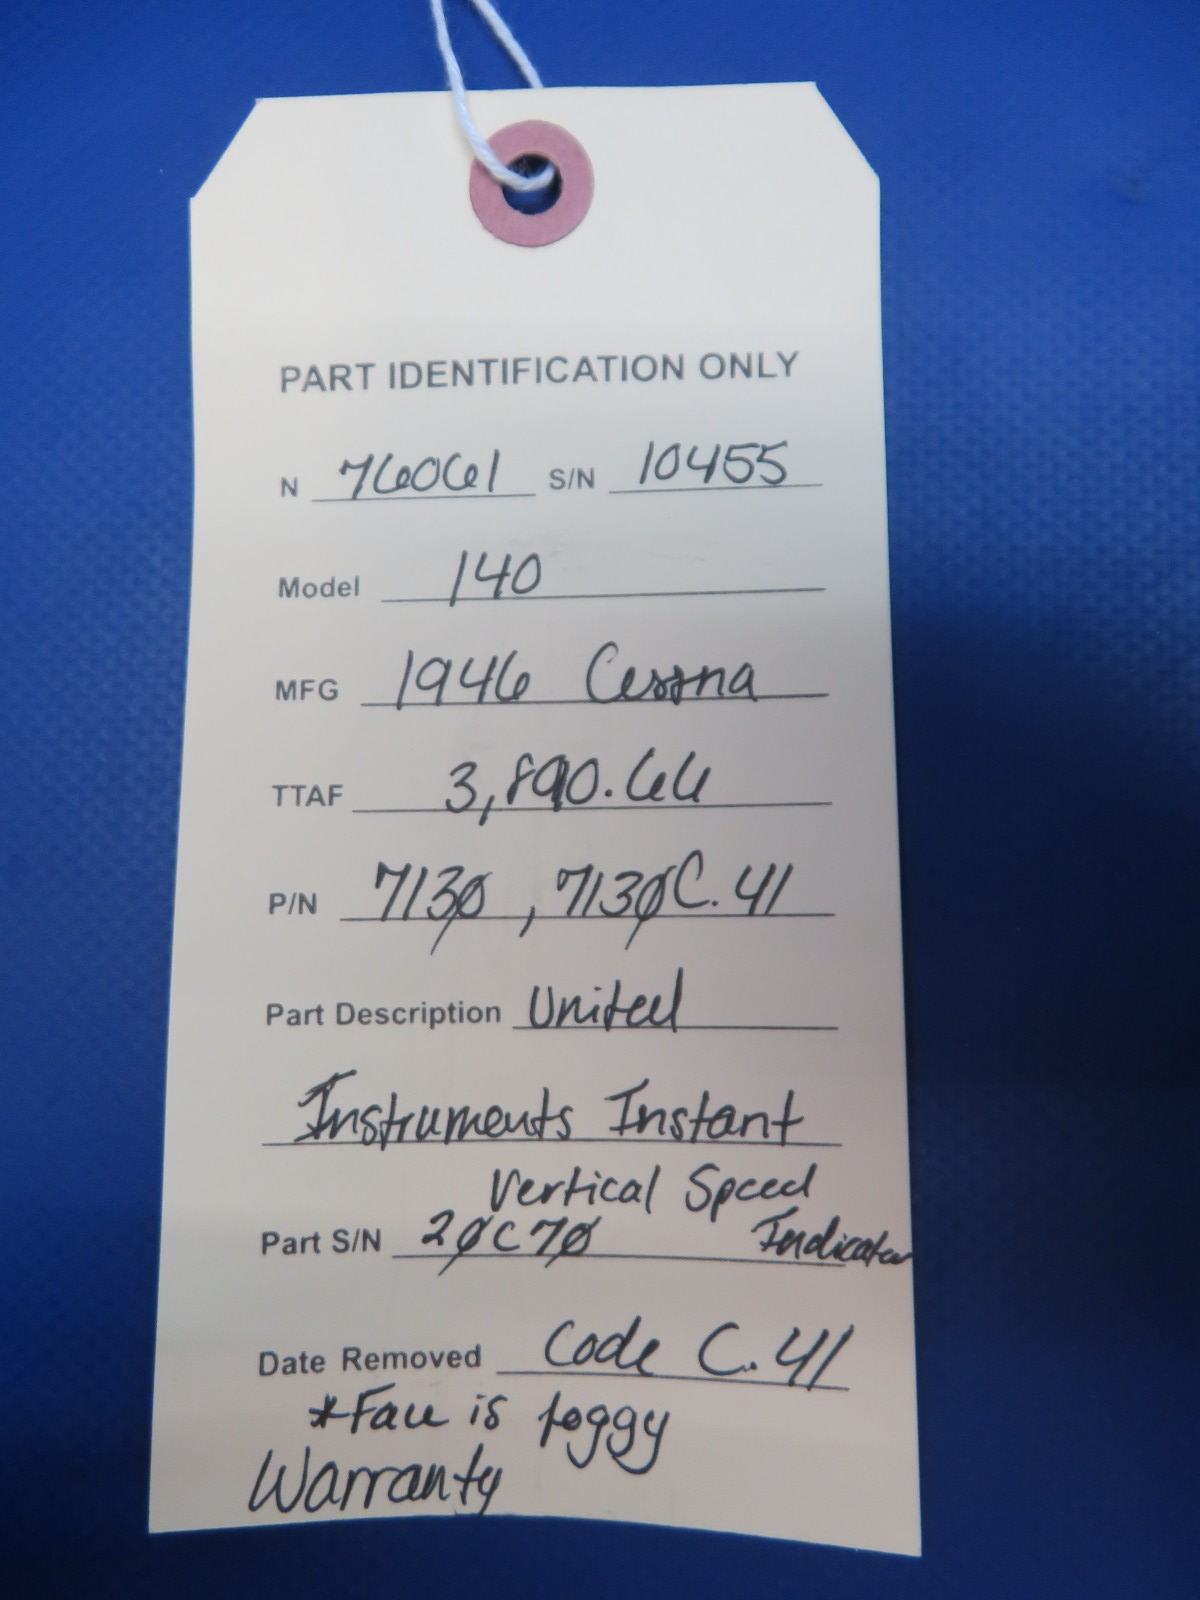 PART IDENTIFICATION ONLY
N 76061 S/N 10455
Model 140
MFG 1946 Cessna
TTAF 3,890.66
P/N 7130, 7130C.41
Part Description United
Instruments Instant
Vertical Speed
Indicator
Part S/N 20C70
Date Removed Code C.41
*Face is foggy
Warranty